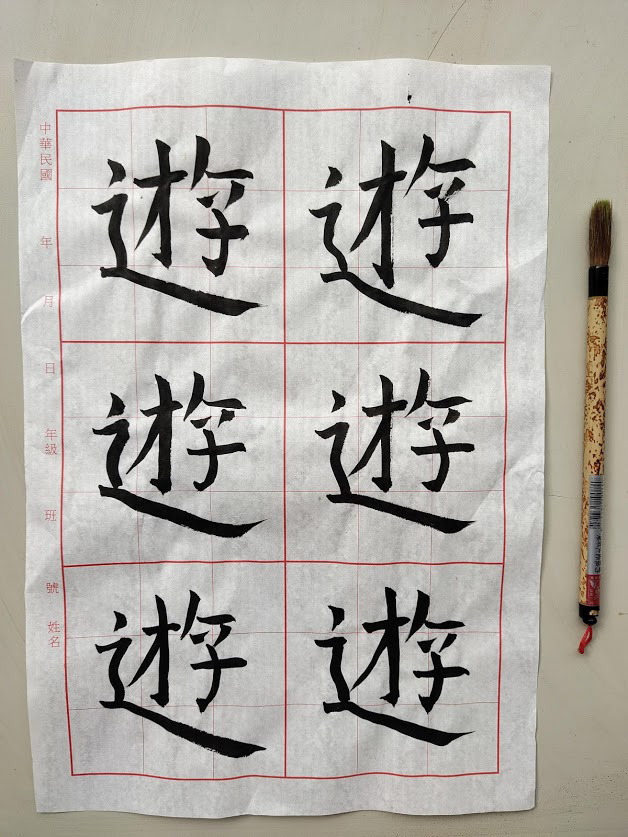 遊 遊
遊 遊
遊 遊
中華民國 年 月 日 年級 班 號 姓名